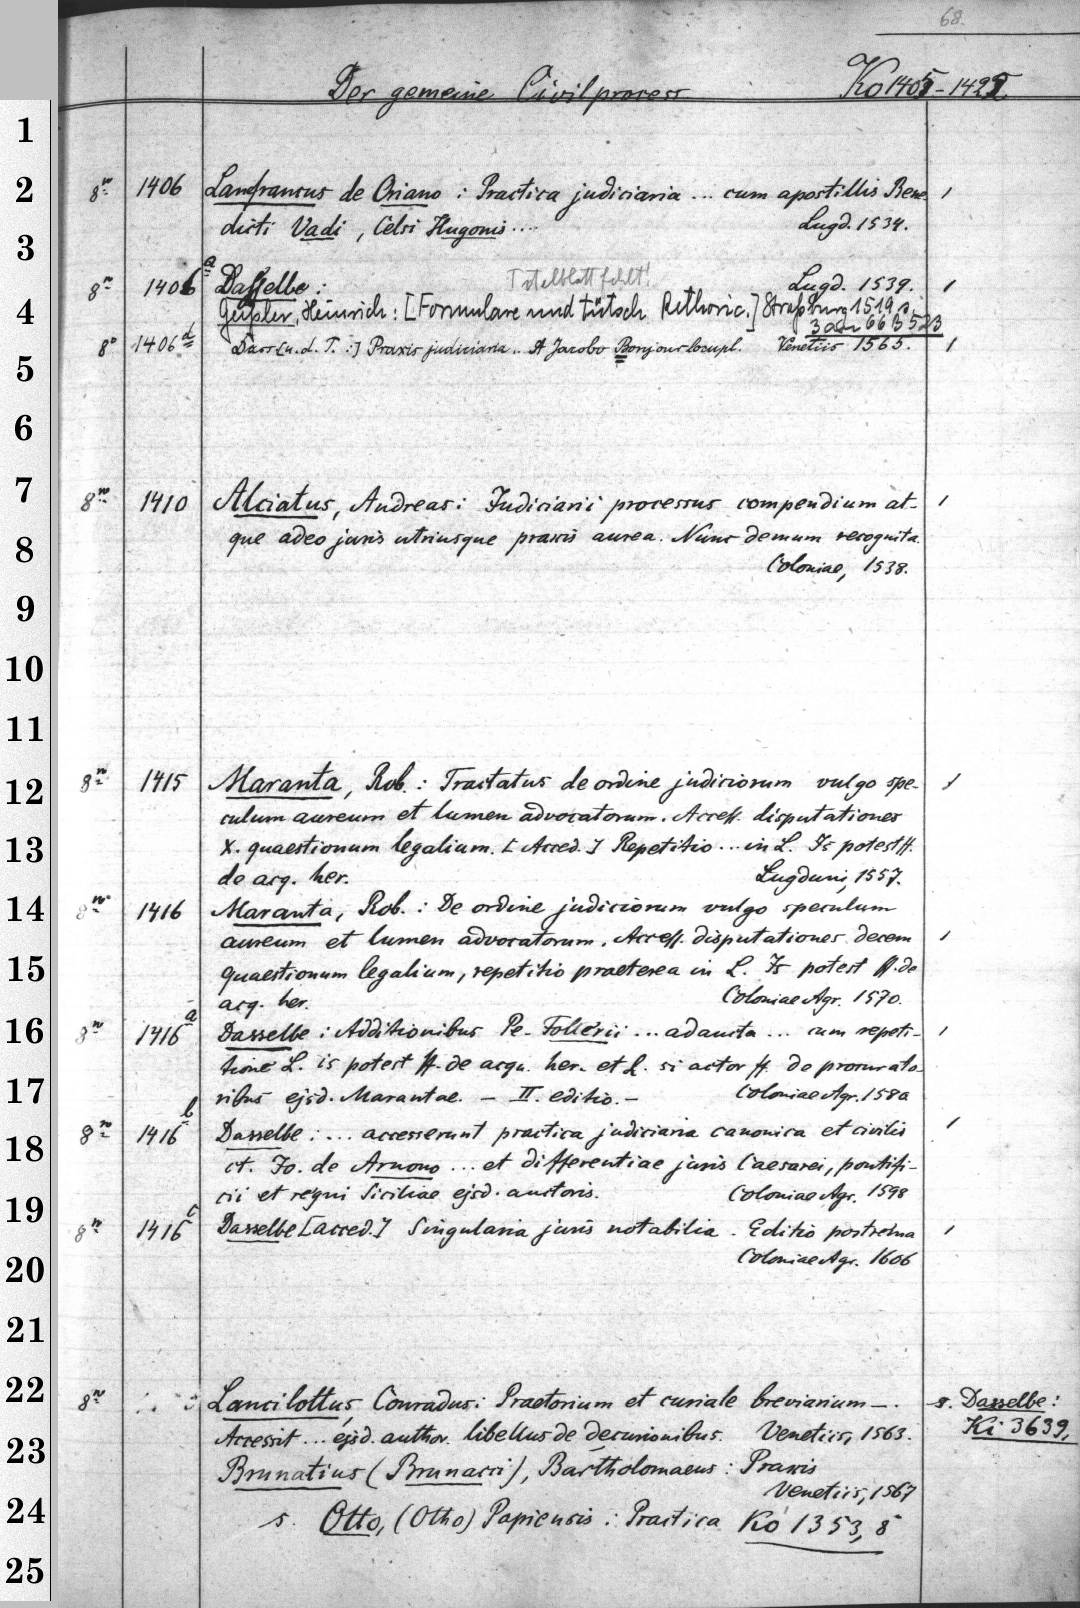 68.
Der gemeine Civilprocess Ko 1405-1425
1
2 8° 1406 Lanfrancus de Oriano : Practica judiciaria ... cum apostillis Bene- 1
dicti Vadi, Celsi Hugonis .... Lugd. 1534.
3
Titelblatt fehlt!
8° 1406 a Dasselbe : Lugd. 1539. 1
4 Geßler, Heinrich : [Formulare und tütsch Rethoric.] Straßburg 1519
8° 1406 d Dass. [u. d. T. :] Praxis judiciaria .. A Jacobo Bonjour locupl. Venetiis 1565. 1
5
6
7 8° 1410 Alciatus, Andreas : Judiciarii processus compendium at- 1
8 que adeo juris utriusque praxis aurea. Nunc demum recognita.
Coloniae, 1538.
9
10
11
12 8° 1415 Maranta, Rob. : Tractatus de ordine judiciorum vulgo spe- 1
culum aureum et lumen advocatorum. Access. disputationes
13 X. quaestionum legalium. [Acced.] Repetitio ... in L. Is potest ff.
de acq. her. Lugduni, 1557.
14 8° 1416 Maranta, Rob. : De ordine judiciorum vulgo speculum
aureum et lumen advocatorum. Access. disputationes decem 1
15 quaestionum legalium, repetitio praeterea in L. Is potest ff. de
acq. her. Coloniae Agr. 1570.
16 8° 1416 a Dasselbe : Additionibus Pe. Follerii ... adaucta ... cum repeti- 1
tione L. is potest ff. de acqu. her. et L. si actor ff. de procurato-
17 ribus ejsd. Marantae. – II. editio. – Coloniae Agr. 1580
18 8° 1416 b Dasselbe : ... accesserunt practica judiciaria canonica et civilis 1
ct. Jo. de Arnono ... et differentiae juris Caesarei, pontifi-
19 cii et regni Siciliae ejsd. auctoris. Coloniae Agr. 1598
8° 1416 c Dasselbe [acced.] Singularia juris notabilia. Editio postrema 1
20 Coloniae Agr. 1606
21
22 8° Lancilottus, Conradus : Praetorium et curiale breviarium –. s. Dasselbe :
Accessit ... ejsd. author. libellus de decurionibus. Venetiis, 1563. Ki 3639,
23 Brunatius (Brunacci), Bartholomaeus : Praxis
Venetiis, 1567
24 s. Otto, (Otho) Papiensis : Practica Ko 1353, 8
25